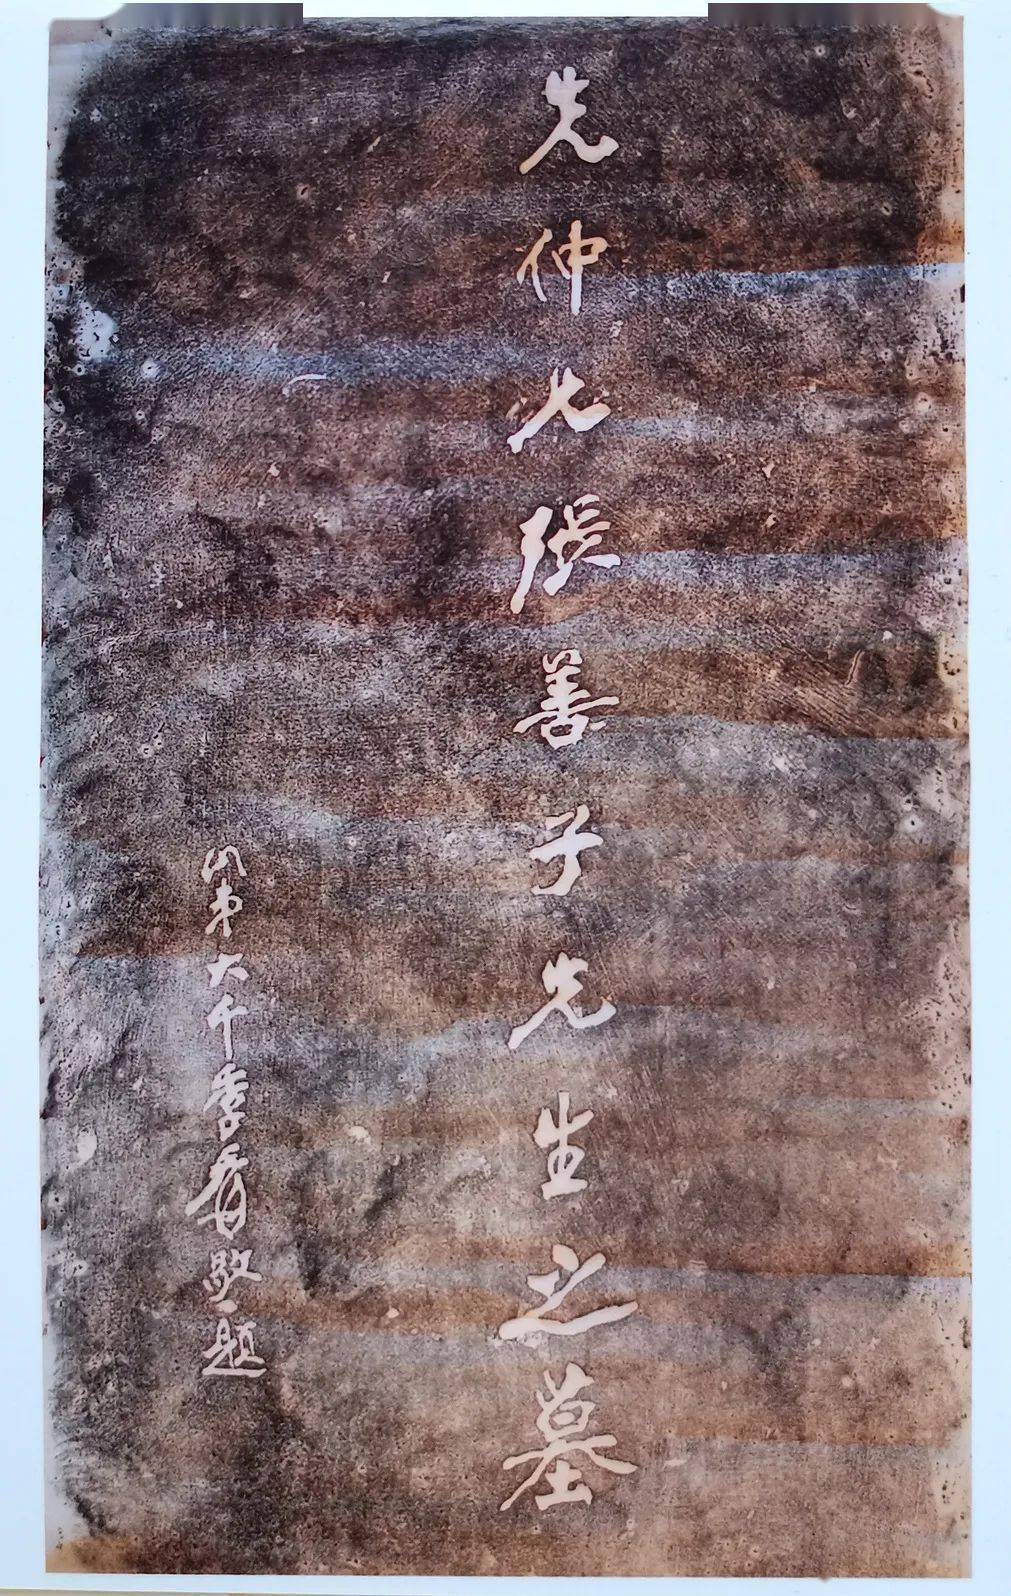 先仲兄張善子先生之墓
弟大千季爰敬題